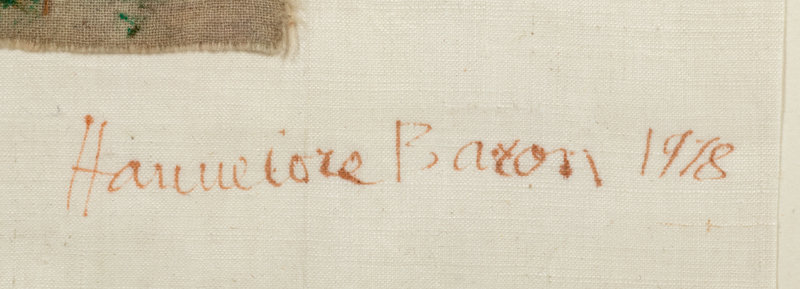 Hannelore Baron 1978